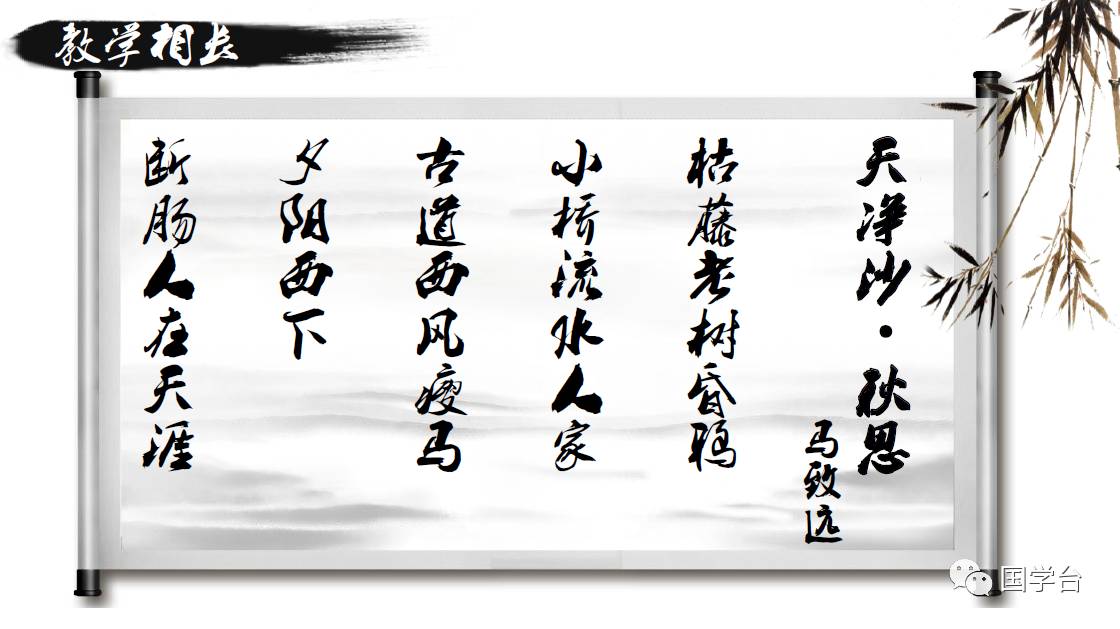 教学相长
天净沙·秋思
马致远
枯藤老树昏鸦
小桥流水人家
古道西风瘦马
夕阳西下
断肠人在天涯
国学台